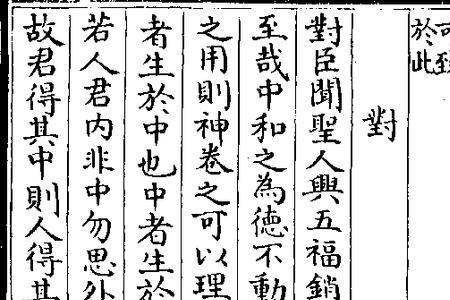 可至
於此
對
對臣聞聖人興五福銷
至哉中和之為德不動
之用則神卷之可以理
者生於中也中者生於
若人君内非中勿思外
故君得其中則人得其